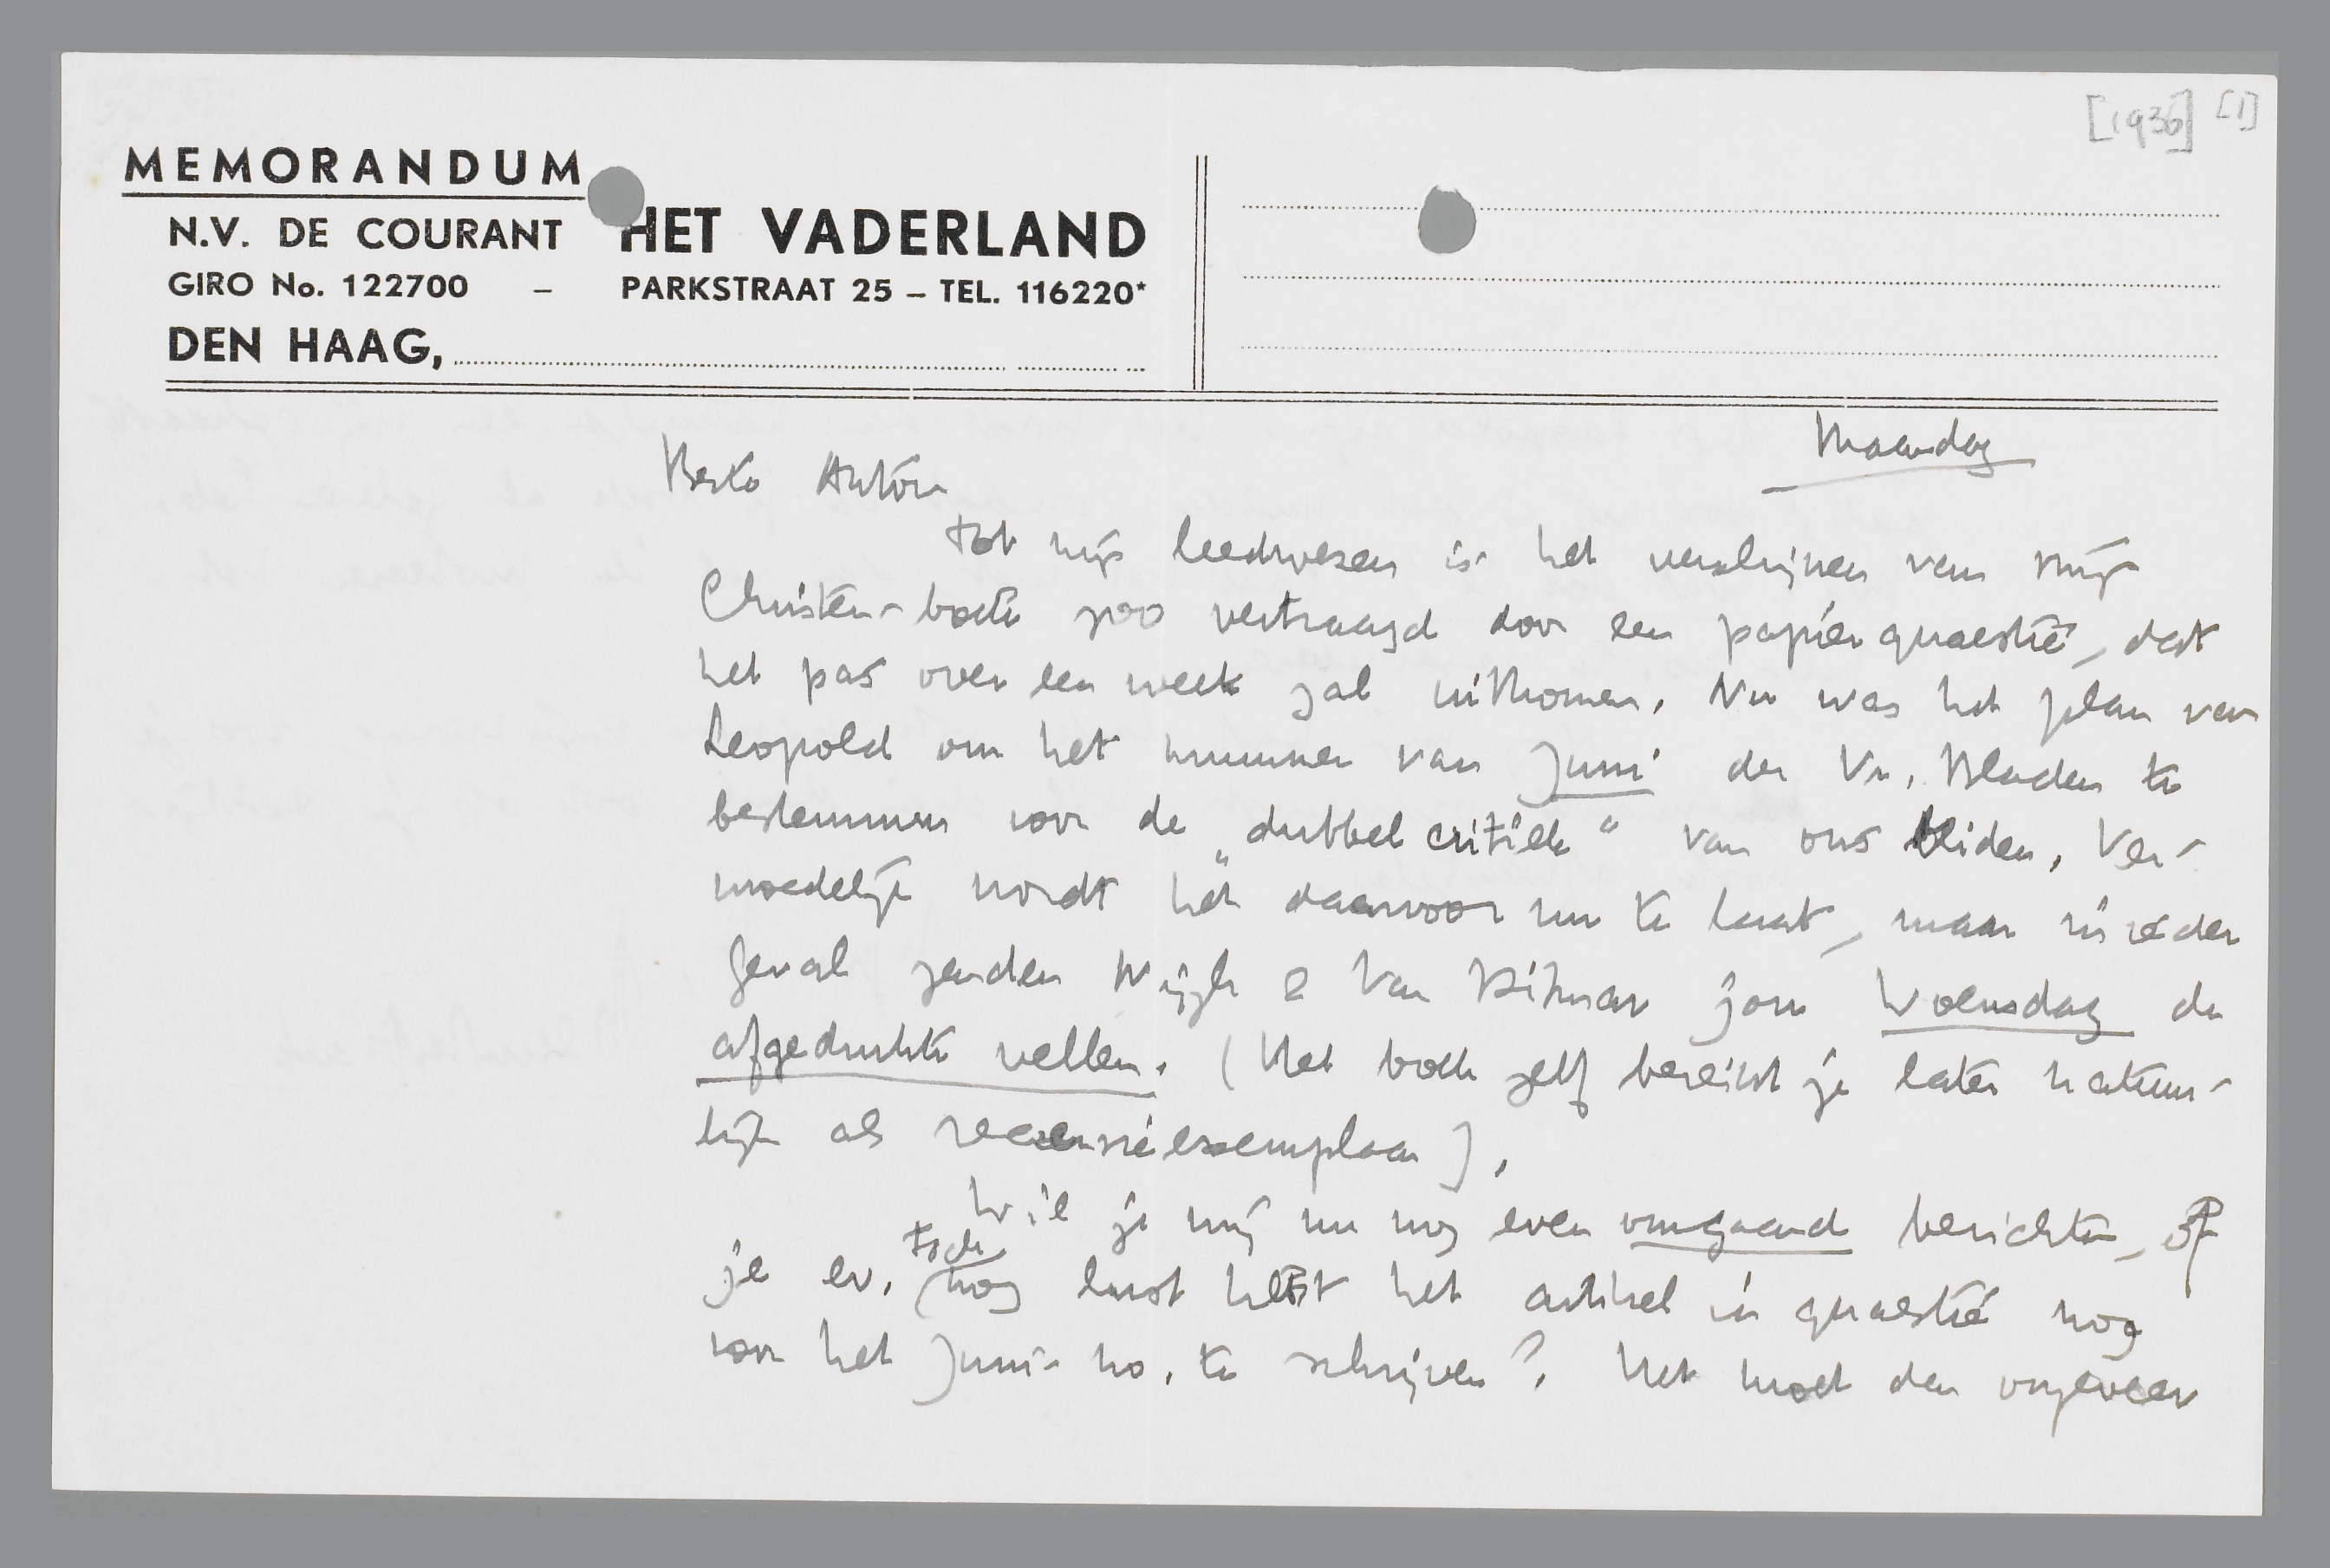 [1936] [1]
MEMORANDUM
N.V. DE COURANT HET VADERLAND
GIRO No. 122700 – PARKSTRAAT 25 – TEL. 116220*
DEN HAAG,
Maandag
Beste Anton
Tot mijn leedwezen is het verschijnen van mijn
Christen-boek zoo vertraagd door een papierquaestie, dat
het pas over een week zal uitkomen. Nu was het plan van
Leopold om het nummer van Juni der Vr. Bladen te
bestemmen voor de „dubbelcritiek" van ons beiden. Ver-
moedelijk wordt het daarvoor nu te laat, maar in ieder
geval zenden Nijgh & Van Ditmar jou Woensdag de
afgedrukte vellen. (Het boek zelf bereikt je later natuur-
lijk als recensieexemplaar).
Wil je mij nu nog even omgaand berichten, òf
je ev. toch nog lust hebt het artikel in quaestie nog
voor het Juni-no. te schrijven? Het moet dan ongeveer